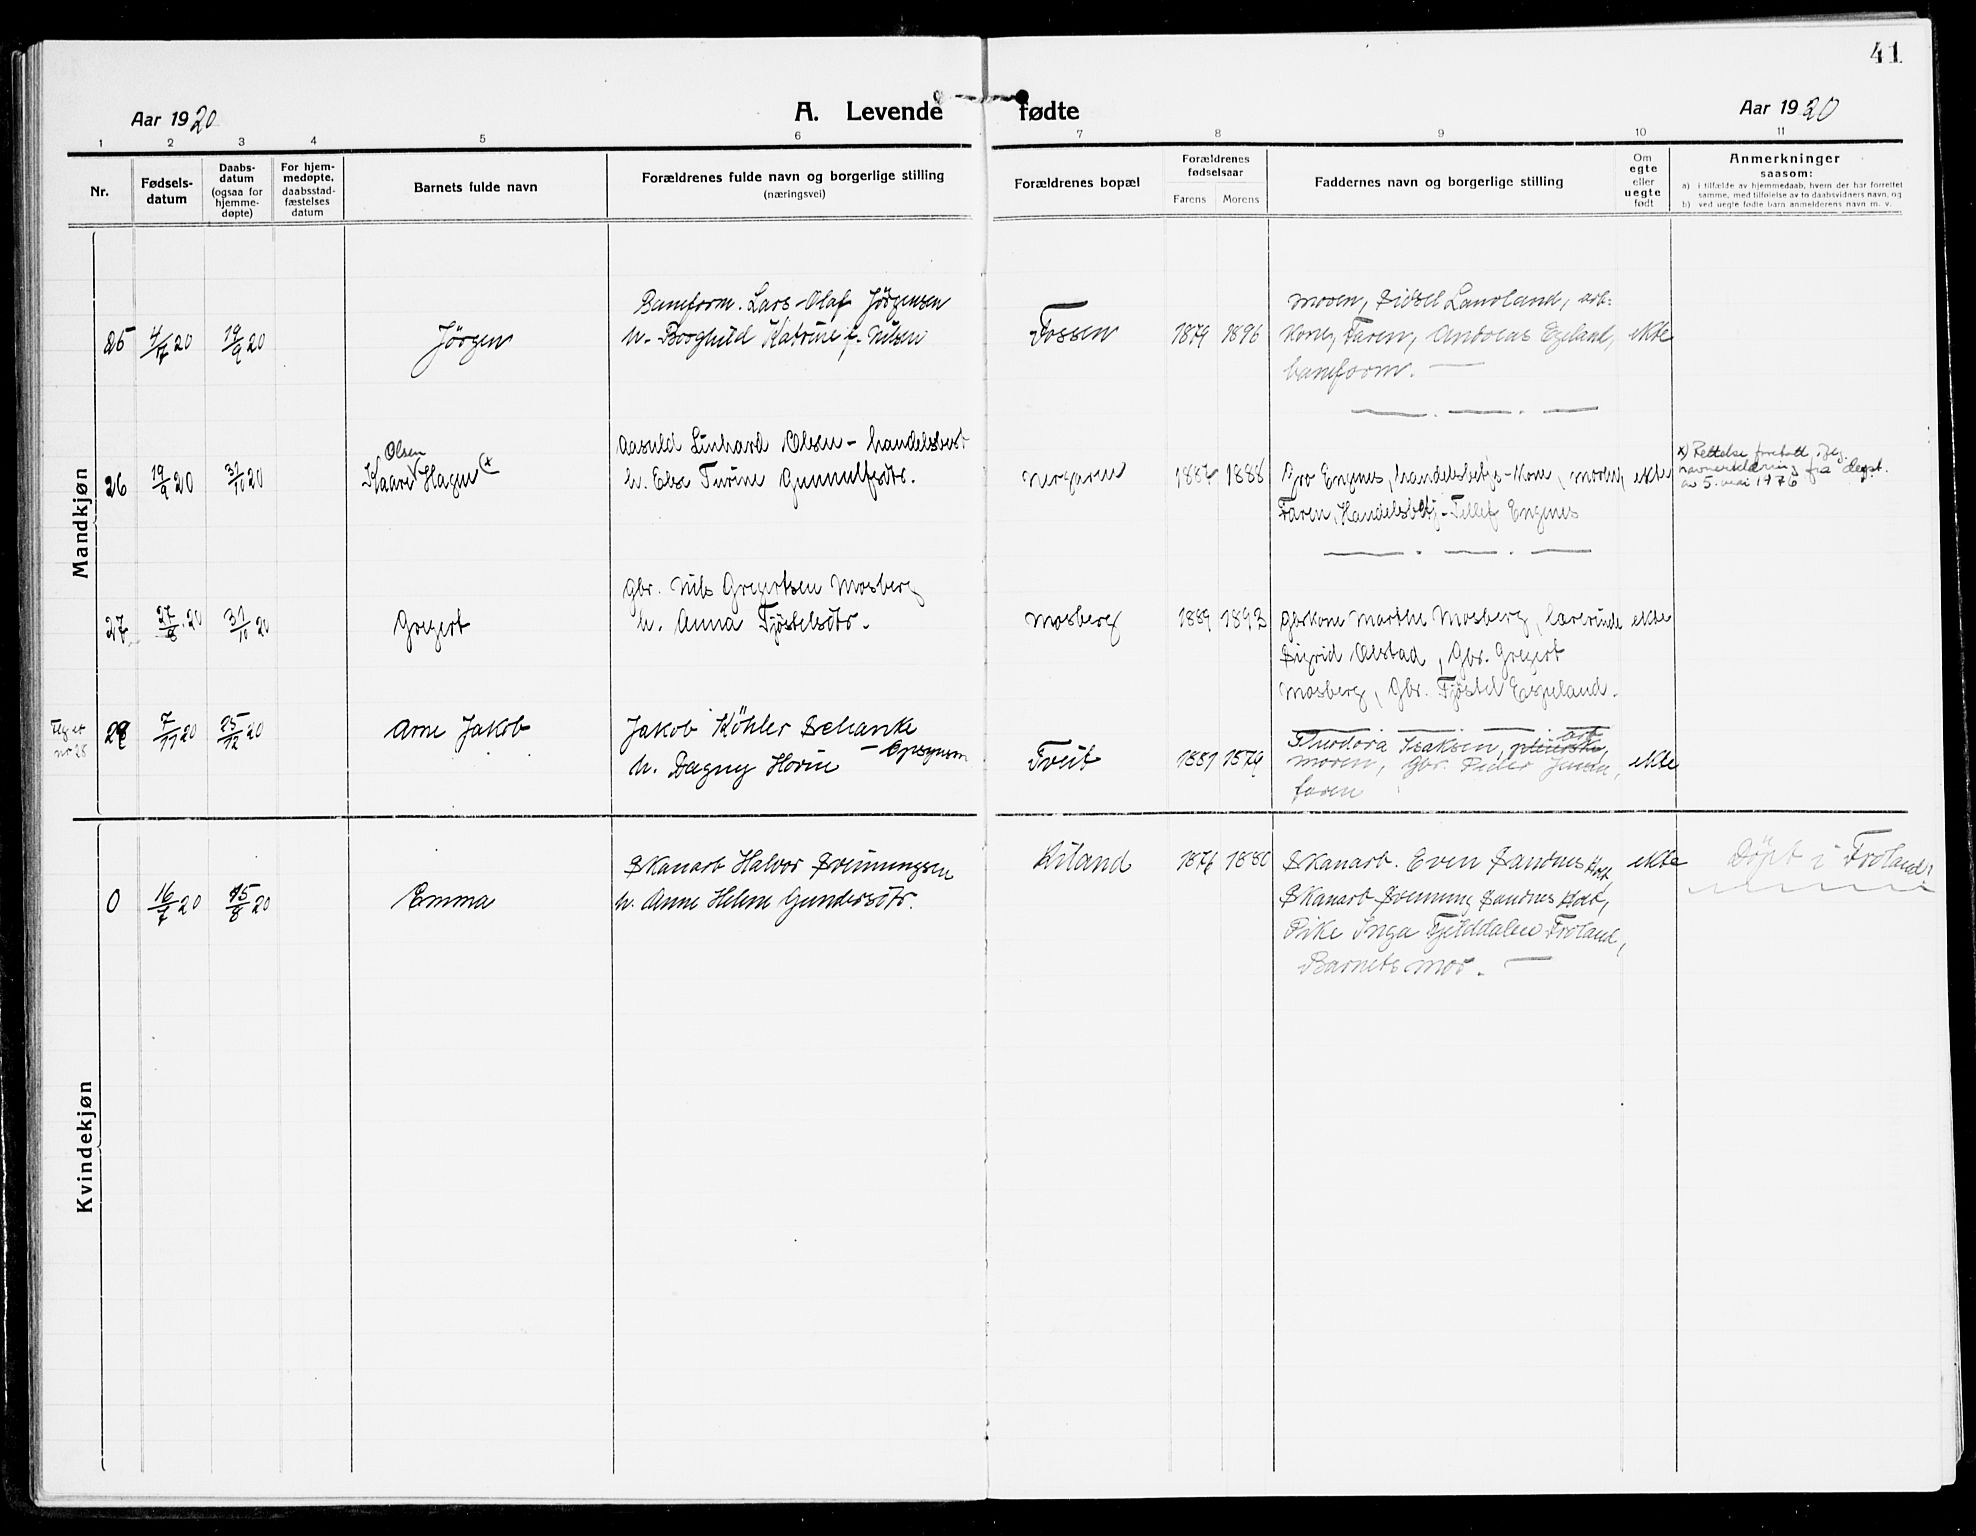 41
Aar 1920
A. Levende fødte
Aar 1920
1 2 3 4 5 6 7 8 9 10 11
Nr.
Fødsels-
datum
Daabs-
datum
(ogsaa for
hjemme-
døpte)
For hjem-
medøpte.
daabsstad-
fæstelses
datum
Barnets fulde navn
Forældrenes fulde navn og borgerlige stilling
(næringsvei)
Forældrenes bopæl
Forældrenes
fødselsaar
Farens Morens
Faddernes navn og borgerlige stilling
Om
egte
eller
uegte
født
Anmerkninger
saasom:
a) i tilfælde av hjemmedaab, hvem der har forrettet
samme, med tilføielse av to daabsvidners navn, og
b) ved uegte fødte barn anmelderens navn m. v.
Mandkjøn
25 4/7 20 19/9 20
Jörgen
Baneform. Lars Olaf Jörgensen
h. Borghild Katrine f. Nilsen
Fossen
1879 1896
moren, Sidsel Lauvland, arb.
kone, Faren, Andreas Egeland,
baneform.
ekte
26 19/9 20 31/10 20
Olsen
Kaare Hagen x)
Aasuld Linhard Olsen - handelsbest
h. Else Turine Gunnulfsdtr.
1887 1888
Gro Engenes, handelsbetj-kone, moren,
Faren, Handelsbetj- Tellef Engenes
ekte
x) Rettelse foretatt iflg.
navneerklæring fra dept.
av 5. mai 1976
27 27/8 20 31/10 20
Gregert
Gbr. Nils Gregertsen Mosberg
h. Anna Tjöstelsdtr.
Mosberg
1889 1893
Gbrkone Marthe Mosberg, lærerinde
Sigrid Olstad, Gbr. Gregert
Mosberg, Gbr. Tjöstel Espeland.
ekte
nr 25
28 7/11 20 25/12 20
Arne Jakob
Jakob Köhler Schanke
- Opsynsm
h. Dagny Horve
Tveit
1881 1879
Theodora Isaksen,
moren, Gbr. Peder Jensen,
faren
ekte
Kvindekjøn
0 16/7 20 15/8 20
Emma
Skanarb Halvor Sveinungsen
h. Anne Helene Gundersdtr.
Risland
1876 1880
Skanarb. Even Sandnes Holt,
Skanarb Sveinung Sandnes Holt,
Pike Inga Fjelddalen Froland,
Barnets mor.
ekte
Döpt i Froland.